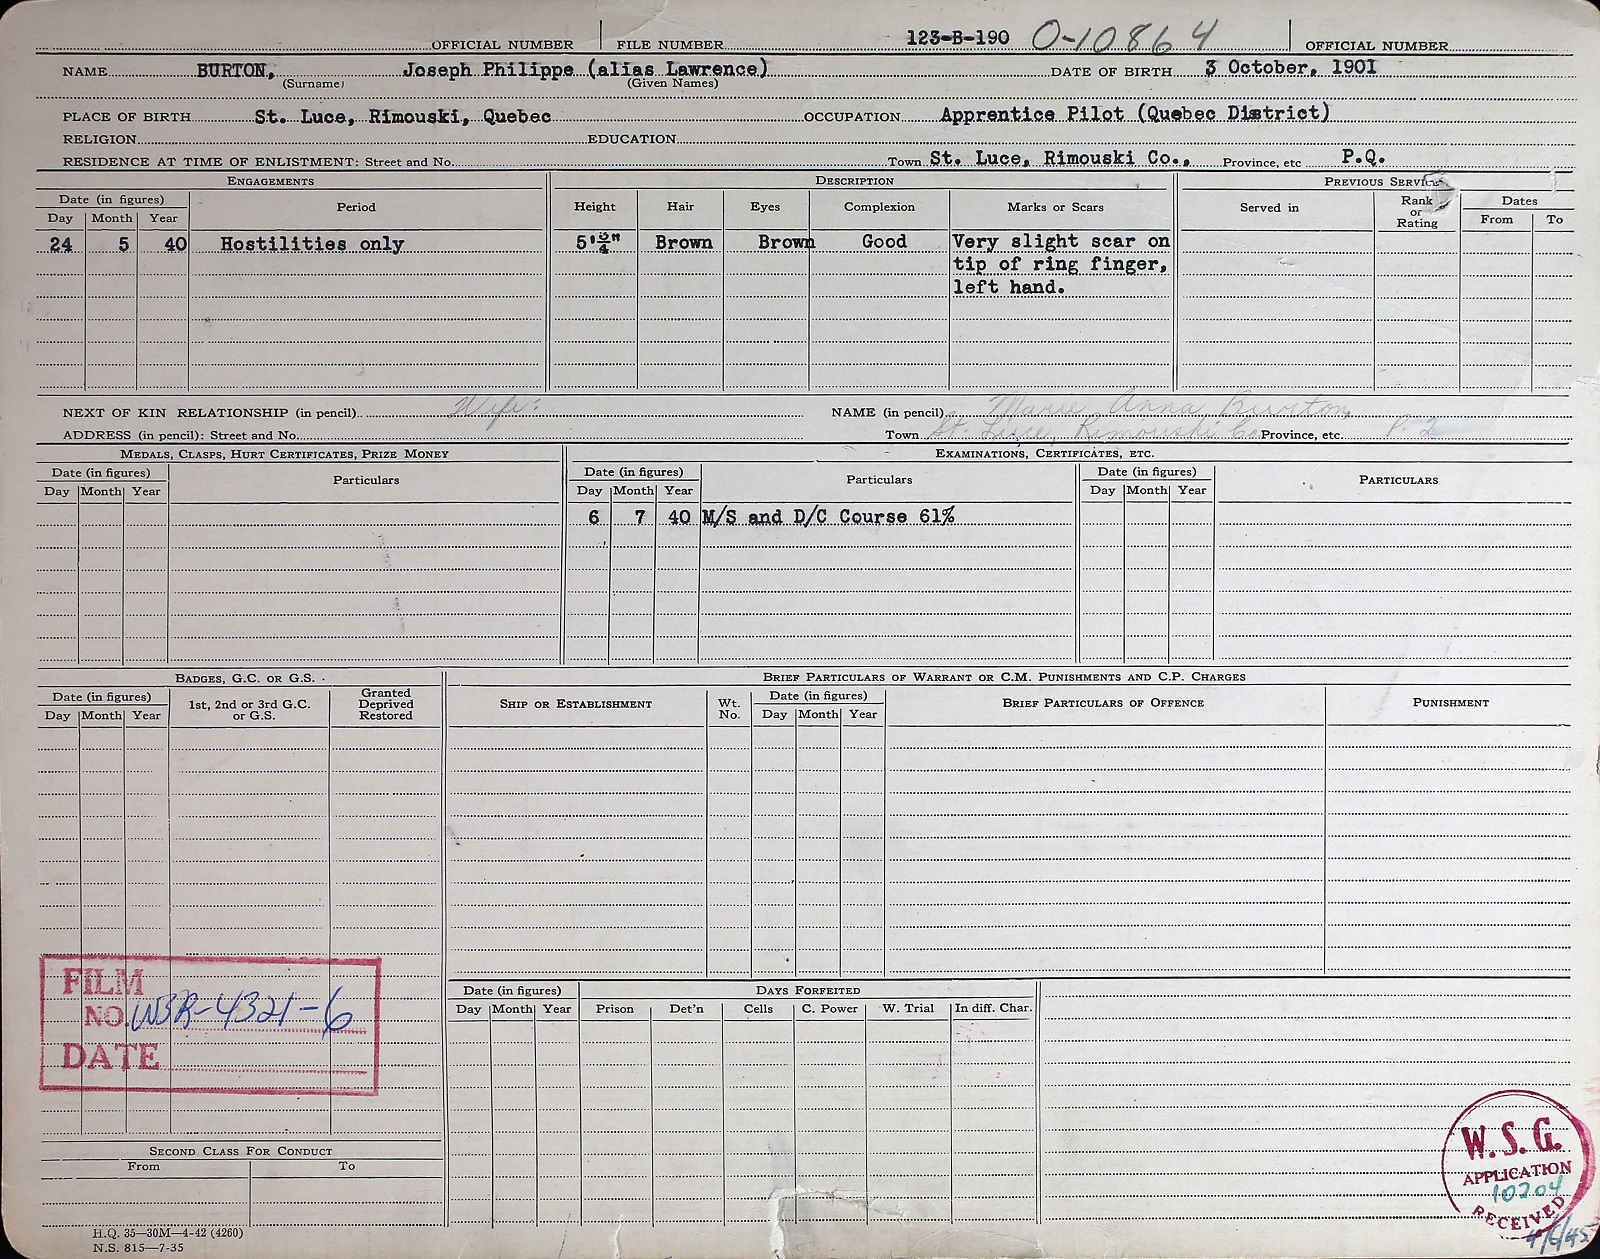 123-B-190 O-10864
OFFICIAL NUMBER FILE NUMBER OFFICIAL NUMBER
NAME BURTON, Joseph Philippe (alias Lawrence) DATE OF BIRTH 3 October, 1901
(Surname) (Given Names)
PLACE OF BIRTH St. Luce, Rimouski, Quebec OCCUPATION Apprentice Pilot (Quebec District)
RELIGION EDUCATION
RESIDENCE AT TIME OF ENLISTMENT: Street and No. Town St. Luce, Rimouski Co., Province, etc P.Q.
ENGAGEMENTS DESCRIPTION PREVIOUS SERVICE
Date (in figures) Period Height Hair Eyes Complexion Marks or Scars Served in Rank or Rating Dates
Day Month Year From To
24 5 40 Hostilities only 5' Brown Brown Good Very slight scar on
tip of ring finger,
left hand.
NEXT OF KIN RELATIONSHIP (in pencil) Wife: NAME (in pencil) Marie Anna Burton
ADDRESS (in pencil): Street and No. Town St. Luce, Rimouski Co. Province, etc. P.Q.
MEDALS, CLASPS, HURT CERTIFICATES, PRIZE MONEY EXAMINATIONS, CERTIFICATES, ETC.
Date (in figures) Particulars Date (in figures) Particulars Date (in figures) PARTICULARS
Day Month Year Day Month Year Day Month Year
6 7 40 M/S and D/C Course 61%
BADGES, G.C. OR G.S. BRIEF PARTICULARS OF WARRANT OR C.M. PUNISHMENTS AND C.P. CHARGES
Date (in figures) 1st, 2nd or 3rd G.C. or G.S. Granted Deprived Restored SHIP OR ESTABLISHMENT Wt. No. Date (in figures) BRIEF PARTICULARS OF OFFENCE PUNISHMENT
Day Month Year Day Month Year
FILM
NO. WSR-4321-6
DATE
Date (in figures) DAYS FORFEITED
Day Month Year Prison Det'n Cells C. Power W. Trial In diff. Char.
SECOND CLASS FOR CONDUCT
From To
W.S.G.
APPLICATION
10204
RECEIVED
4/6/45
H.Q. 35—30M—4-42 (4260)
N.S. 815—7-35